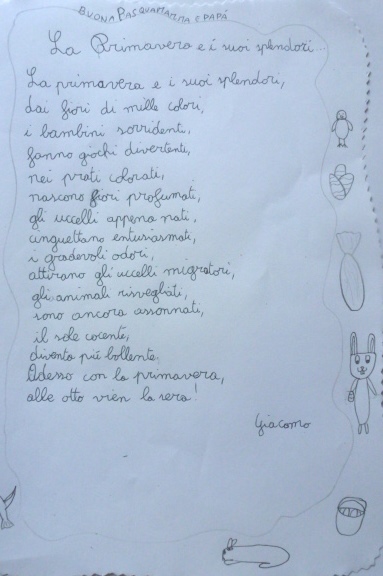 BUONA PASQUA MAMMA E PAPÁ
La Primavera e i suoi splendori...
La primavera e i suoi splendori,
dai fiori di mille colori,
i bambini sorridenti,
fanno giochi divertenti,
nei prati colorati,
nascono fiori profumati,
gli uccelli appena nati,
cinguettano entusiasmati,
i gradevoli odori,
attirano gli uccelli migratori,
gli animali risvegliati,
sono ancora assonnati,
il sole cocente,
diventa più bollente.
Adesso con la primavera,
alle otto vien la sera!
Giacomo